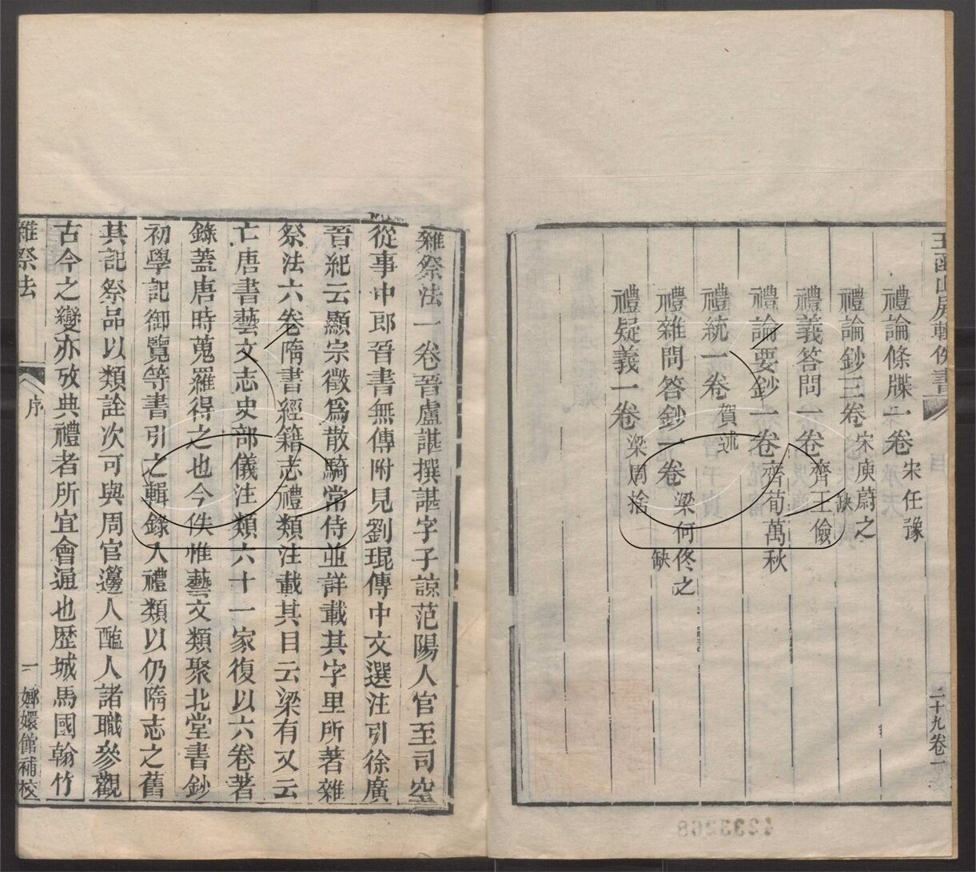 玉函山房輯佚書
禮論條牒一卷 宋任豫
禮論鈔三卷 宋庾蔚之 缺
禮義答問一卷 齊王儉
禮論要鈔一卷 齊荀萬秋
禮統一卷 賀述
禮雜問答鈔一卷 梁何佟之 缺
禮疑義一卷 梁周捨
目
二十九卷一
雜祭法一卷晉盧諶撰諶字子諒范陽人官至司空
從事中郎晉書無傳附見劉琨傳中文選注引徐廣
晉紀云顯宗徵爲散騎常侍並詳載其字里所著雜
祭法六卷隋書經籍志禮類注載其目云梁有又云
亡唐書藝文志史部儀注類六十一家復以六卷著
錄蓋唐時蒐羅得之也今佚惟藝文類聚北堂書鈔
初學記御覽等書引之輯錄入禮類以仍隋志之舊
其記祭品以類詮次可與周官籩人醢人諸職參觀
古今之變亦攷典禮者所宜會通也歷城馬國翰竹
雜祭法
序
一
嫏嬛館補校
4233268